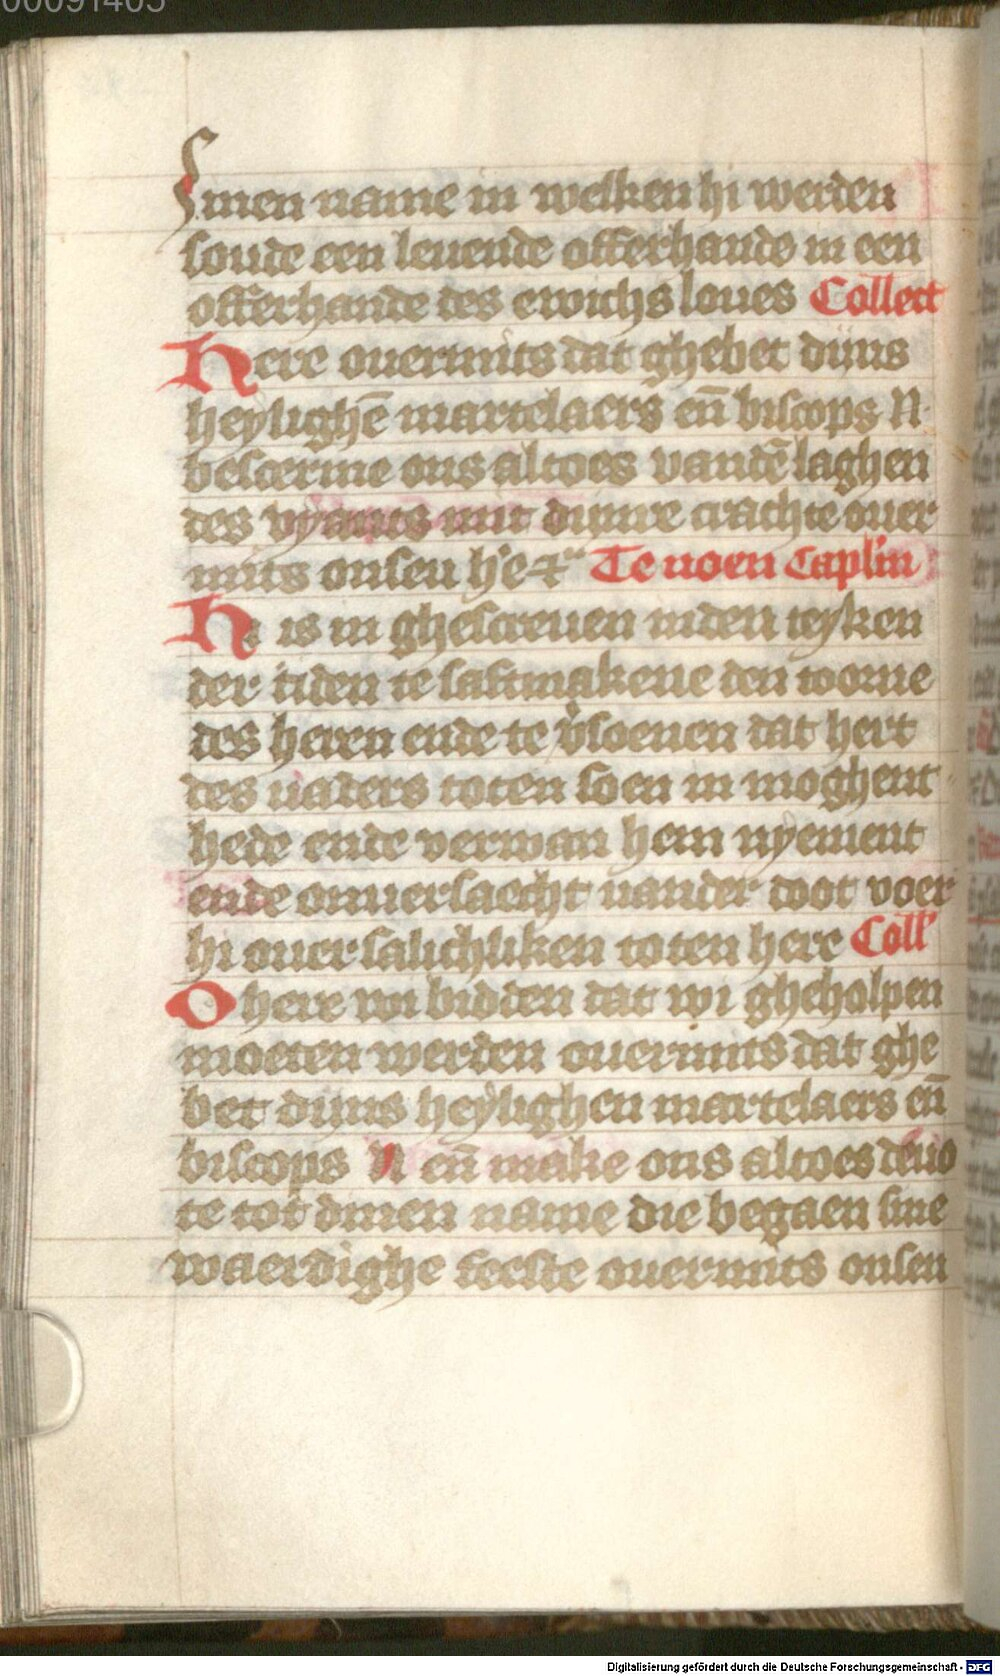 00091405
Sinen name in welken hi werden
soude een leuende offerhande in een
offerhande des ewichs loues Collect
Here ouermits dat ghebet dijns
heylighē martelaers eñ biscops N
bescerme ons altoes vandē laghen
des vyants mit dijnre crachte ouer
mits onsen hē Te noen Capl'm
Hi is in ghescreuen inden teyken
der tiden te saftmakene den toorne
des heren ende te v̾soenen dat hert
des uaders toten soen in moghent
hede ende verwan hem nyement
ende onuersaecht uander doot voer
hi ouer salichliken toten here Coll'
O here wi bidden dat wi gheholpen
moeten werden ouermits dat ghe
bet dijns heylighen martelaers eñ
biscops N eñ make ons altoes deuo
te tot dinen name die begaen sine
waerdighe feeste ouermits onsen
Digitalisierung gefördert durch die Deutsche Forschungsgemeinschaft - DFG